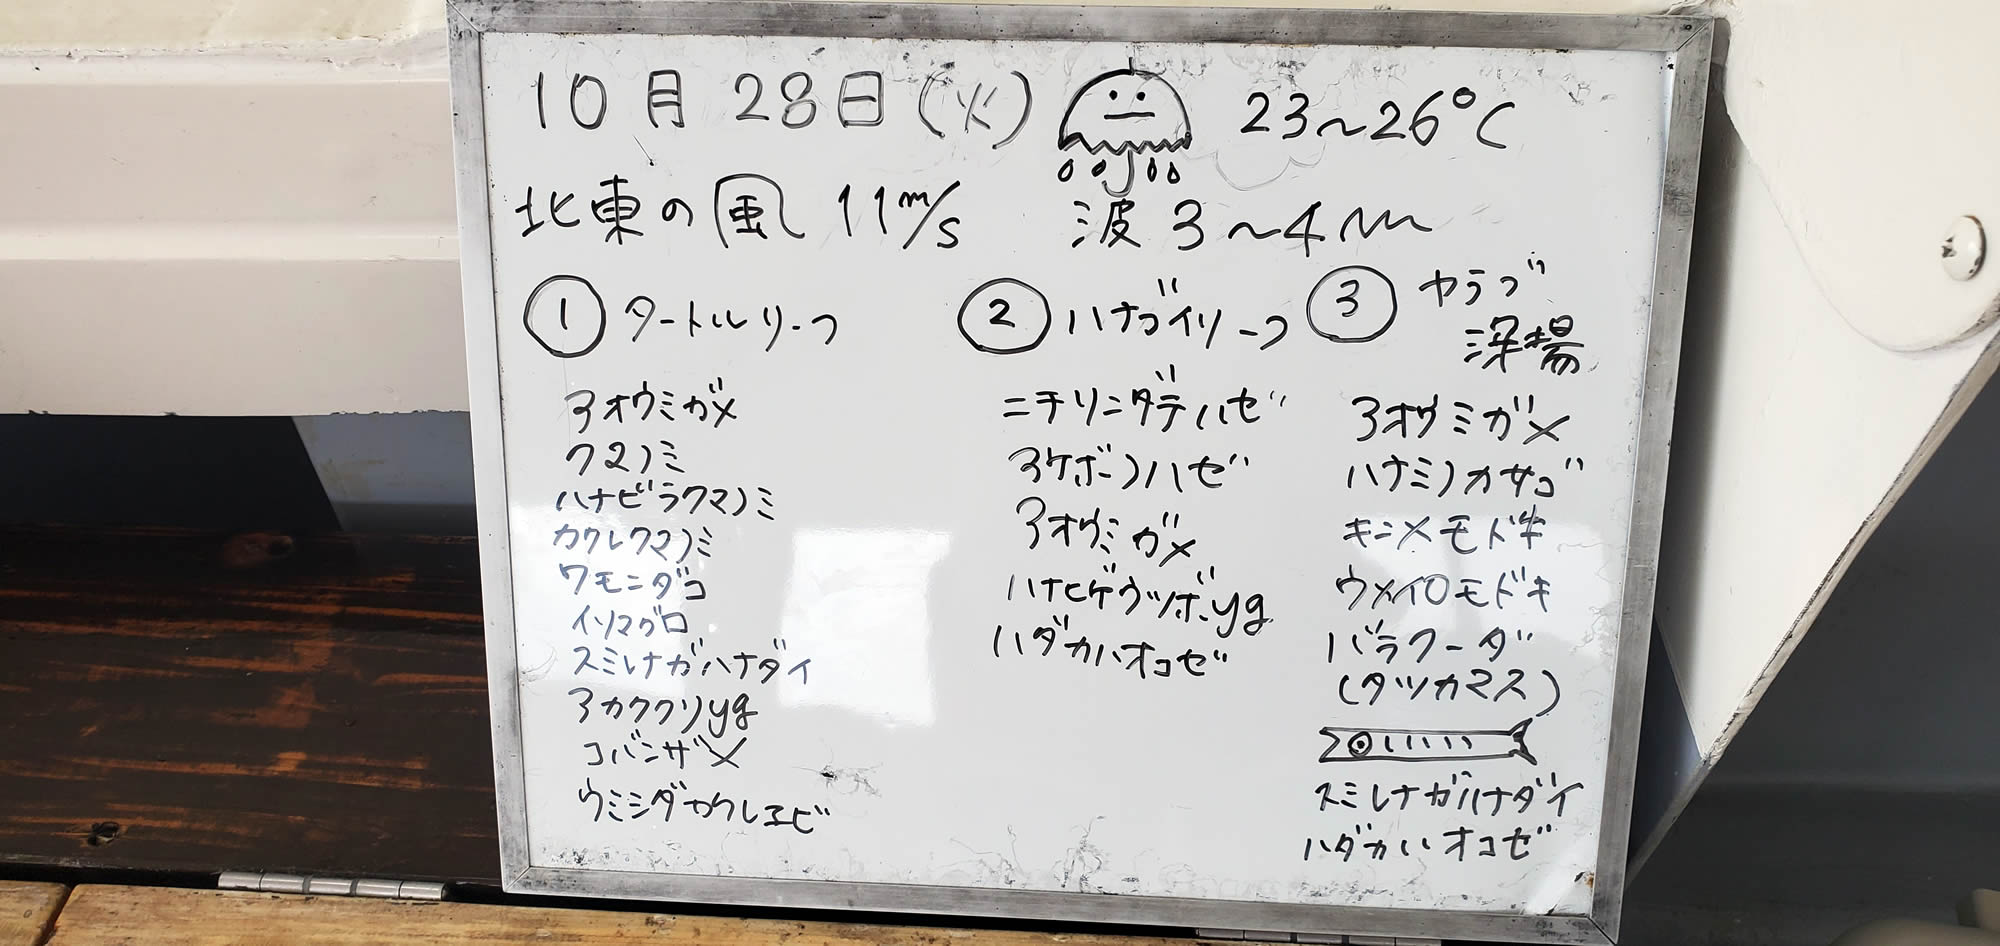 10月28日(火) 23~26℃
北東の風 11m/s 波 3~4m
① タートルリーフ
アオウミガメ
クマノミ
ハナビラクマノミ
カクレクマノミ
ワモンダコ
イソマグロ
スミレナガハナダイ
アカククリyg
コバンザメ
ウミシダカクレエビ
② ハナゴイリーフ
ニチリンダテハゼ
アケボノハゼ
アオウミガメ
ハナヒゲウツボyg
ハダカハオコゼ
③ ヤラブ
深場
アオウミガメ
ハナミノカサゴ
キンメモドキ
ウメイロモドキ
バラクーダ
(タツカマス)
スミレナガハナダイ
ハダカハオコゼ